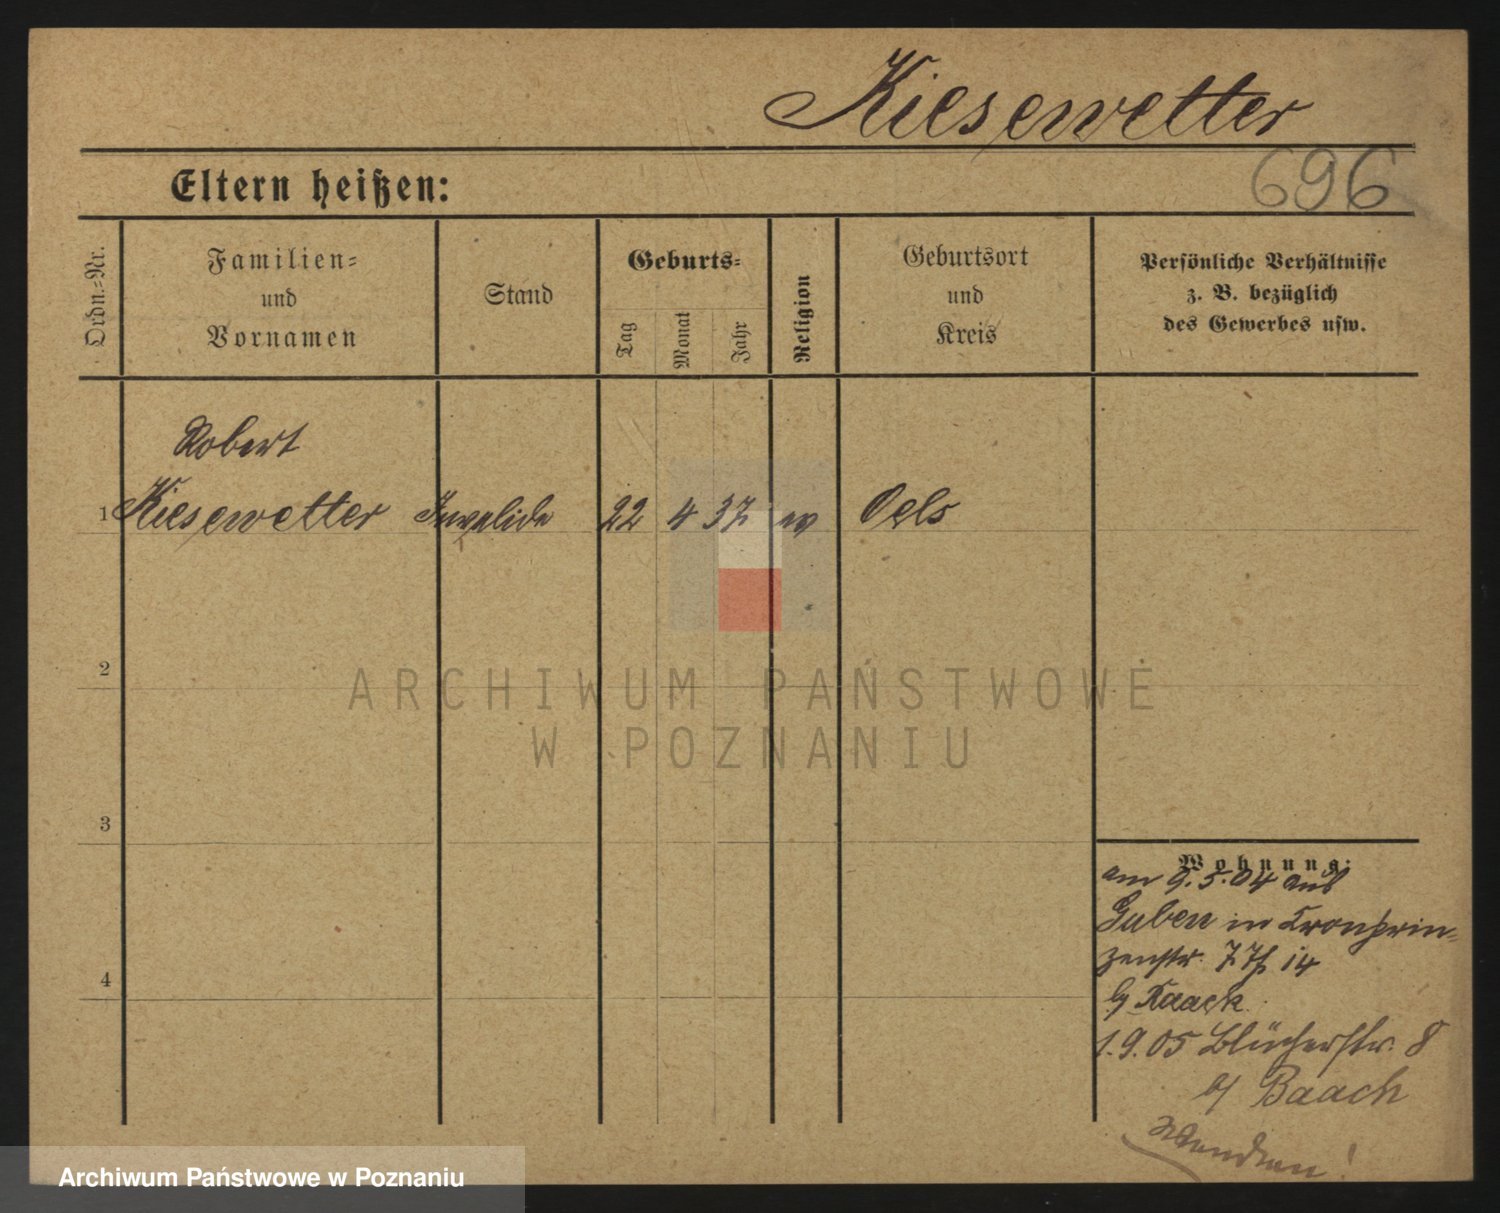 Kiesewetter
696
Eltern heißen:
Ordn.-Nr.
Familien-
und
Vornamen
Stand
Geburts-
Tag
Monat
Jahr
Religion
Geburtsort
und
Kreis
Persönliche Verhältnisse
z. B. bezüglich
des Gewerbes usw.
Robert
1 Kiesewetter Invalide 22 4 37 ev Oels
2
ARCHIWUM PAŃSTWOWE
W POZNANIU
3
4
Wohnung:
am 9.5.04 aus
Guben in Kronprin-
zenstr. 14
b/ Kaack
1.9.05 Blücherstr. 8
b/ Baach
Wenden!
Archiwum Państwowe w Poznaniu